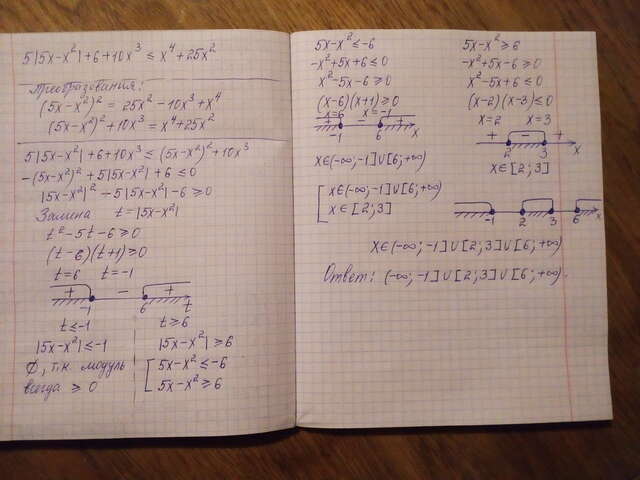 5|5x-x²|+6+10x³ ≤ x⁴+25x²
Преобразования:
(5x-x²)² = 25x²-10x³+x⁴
(5x-x²)²+10x³ = x⁴+25x²
5|5x-x²|+6+10x³ ≤ (5x-x²)²+10x³
-(5x-x²)²+5|5x-x²|+6 ≤ 0
|5x-x²|²-5|5x-x²|-6 ≥ 0
Замена t=|5x-x²|
t²-5t-6 ≥ 0
(t-6)(t+1) ≥ 0
t=6 t=-1
+ - +
-1 6 t
t ≤ -1 t ≥ 6
|5x-x²| ≤ -1 |5x-x²| ≥ 6
∅, т.к. модуль [ 5x-x² ≤ -6
всегда ≥ 0 5x-x² ≥ 6
5x-x² ≤ -6 5x-x² ≥ 6
-x²+5x+6 ≤ 0 -x²+5x-6 ≥ 0
x²-5x-6 ≥ 0 x²-5x+6 ≤ 0
(x-6)(x+1) ≥ 0 (x-2)(x-3) ≤ 0
x=6 x=-1 x=2 x=3
+ - + + - +
-1 6 x 2 3 x
x∈(-∞;-1]∪[6;+∞) x∈[2;3]
[ x∈(-∞;-1]∪[6;+∞)
x∈[2;3] -1 2 3 6 x
x∈(-∞;-1]∪[2;3]∪[6;+∞)
Ответ: (-∞;-1]∪[2;3]∪[6;+∞).